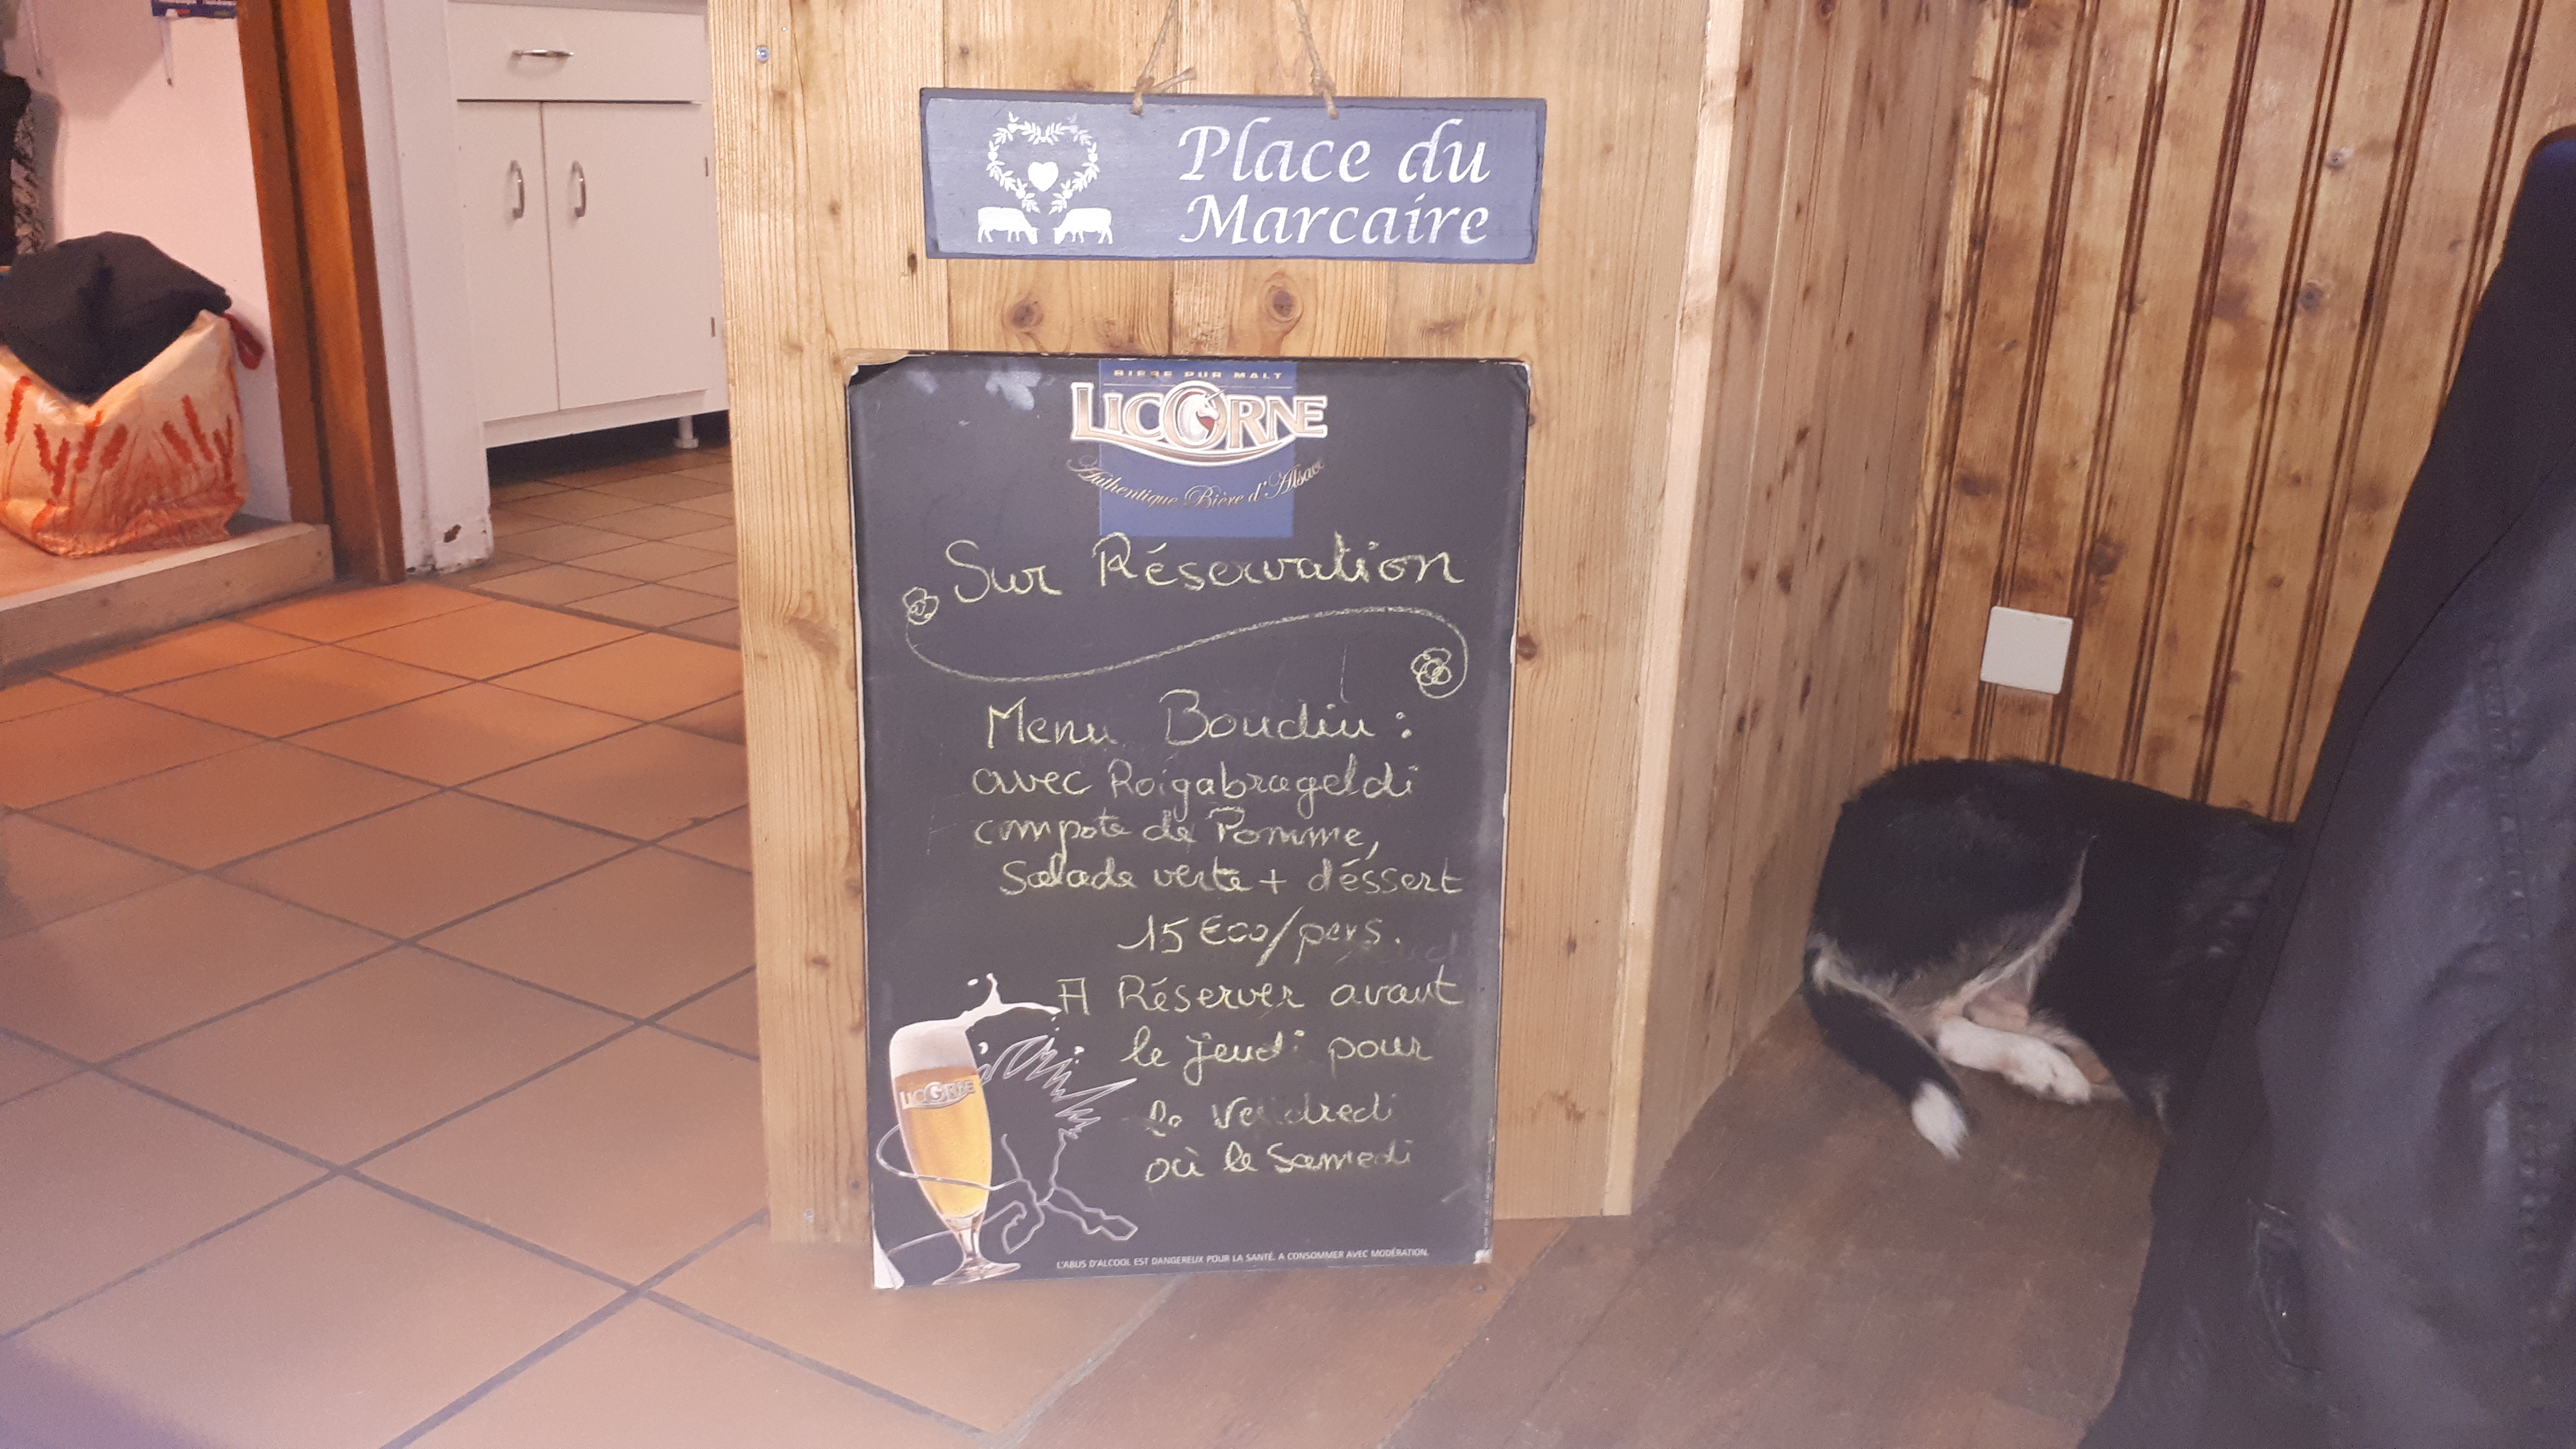 Place du
Marcaire
BIERE PUR MALT
LICORNE
Authentique Bière d'Alsace
Sur Réservation
Menu Boudin :
avec Roigabrageldi
compote de Pomme,
Salade verte + déssert
15 €00/pers.
A Réserver avant
le jeudi pour
le Vendredi
où le Samedi
LICORNE
L'ABUS D'ALCOOL EST DANGEREUX POUR LA SANTÉ. A CONSOMMER AVEC MODÉRATION.